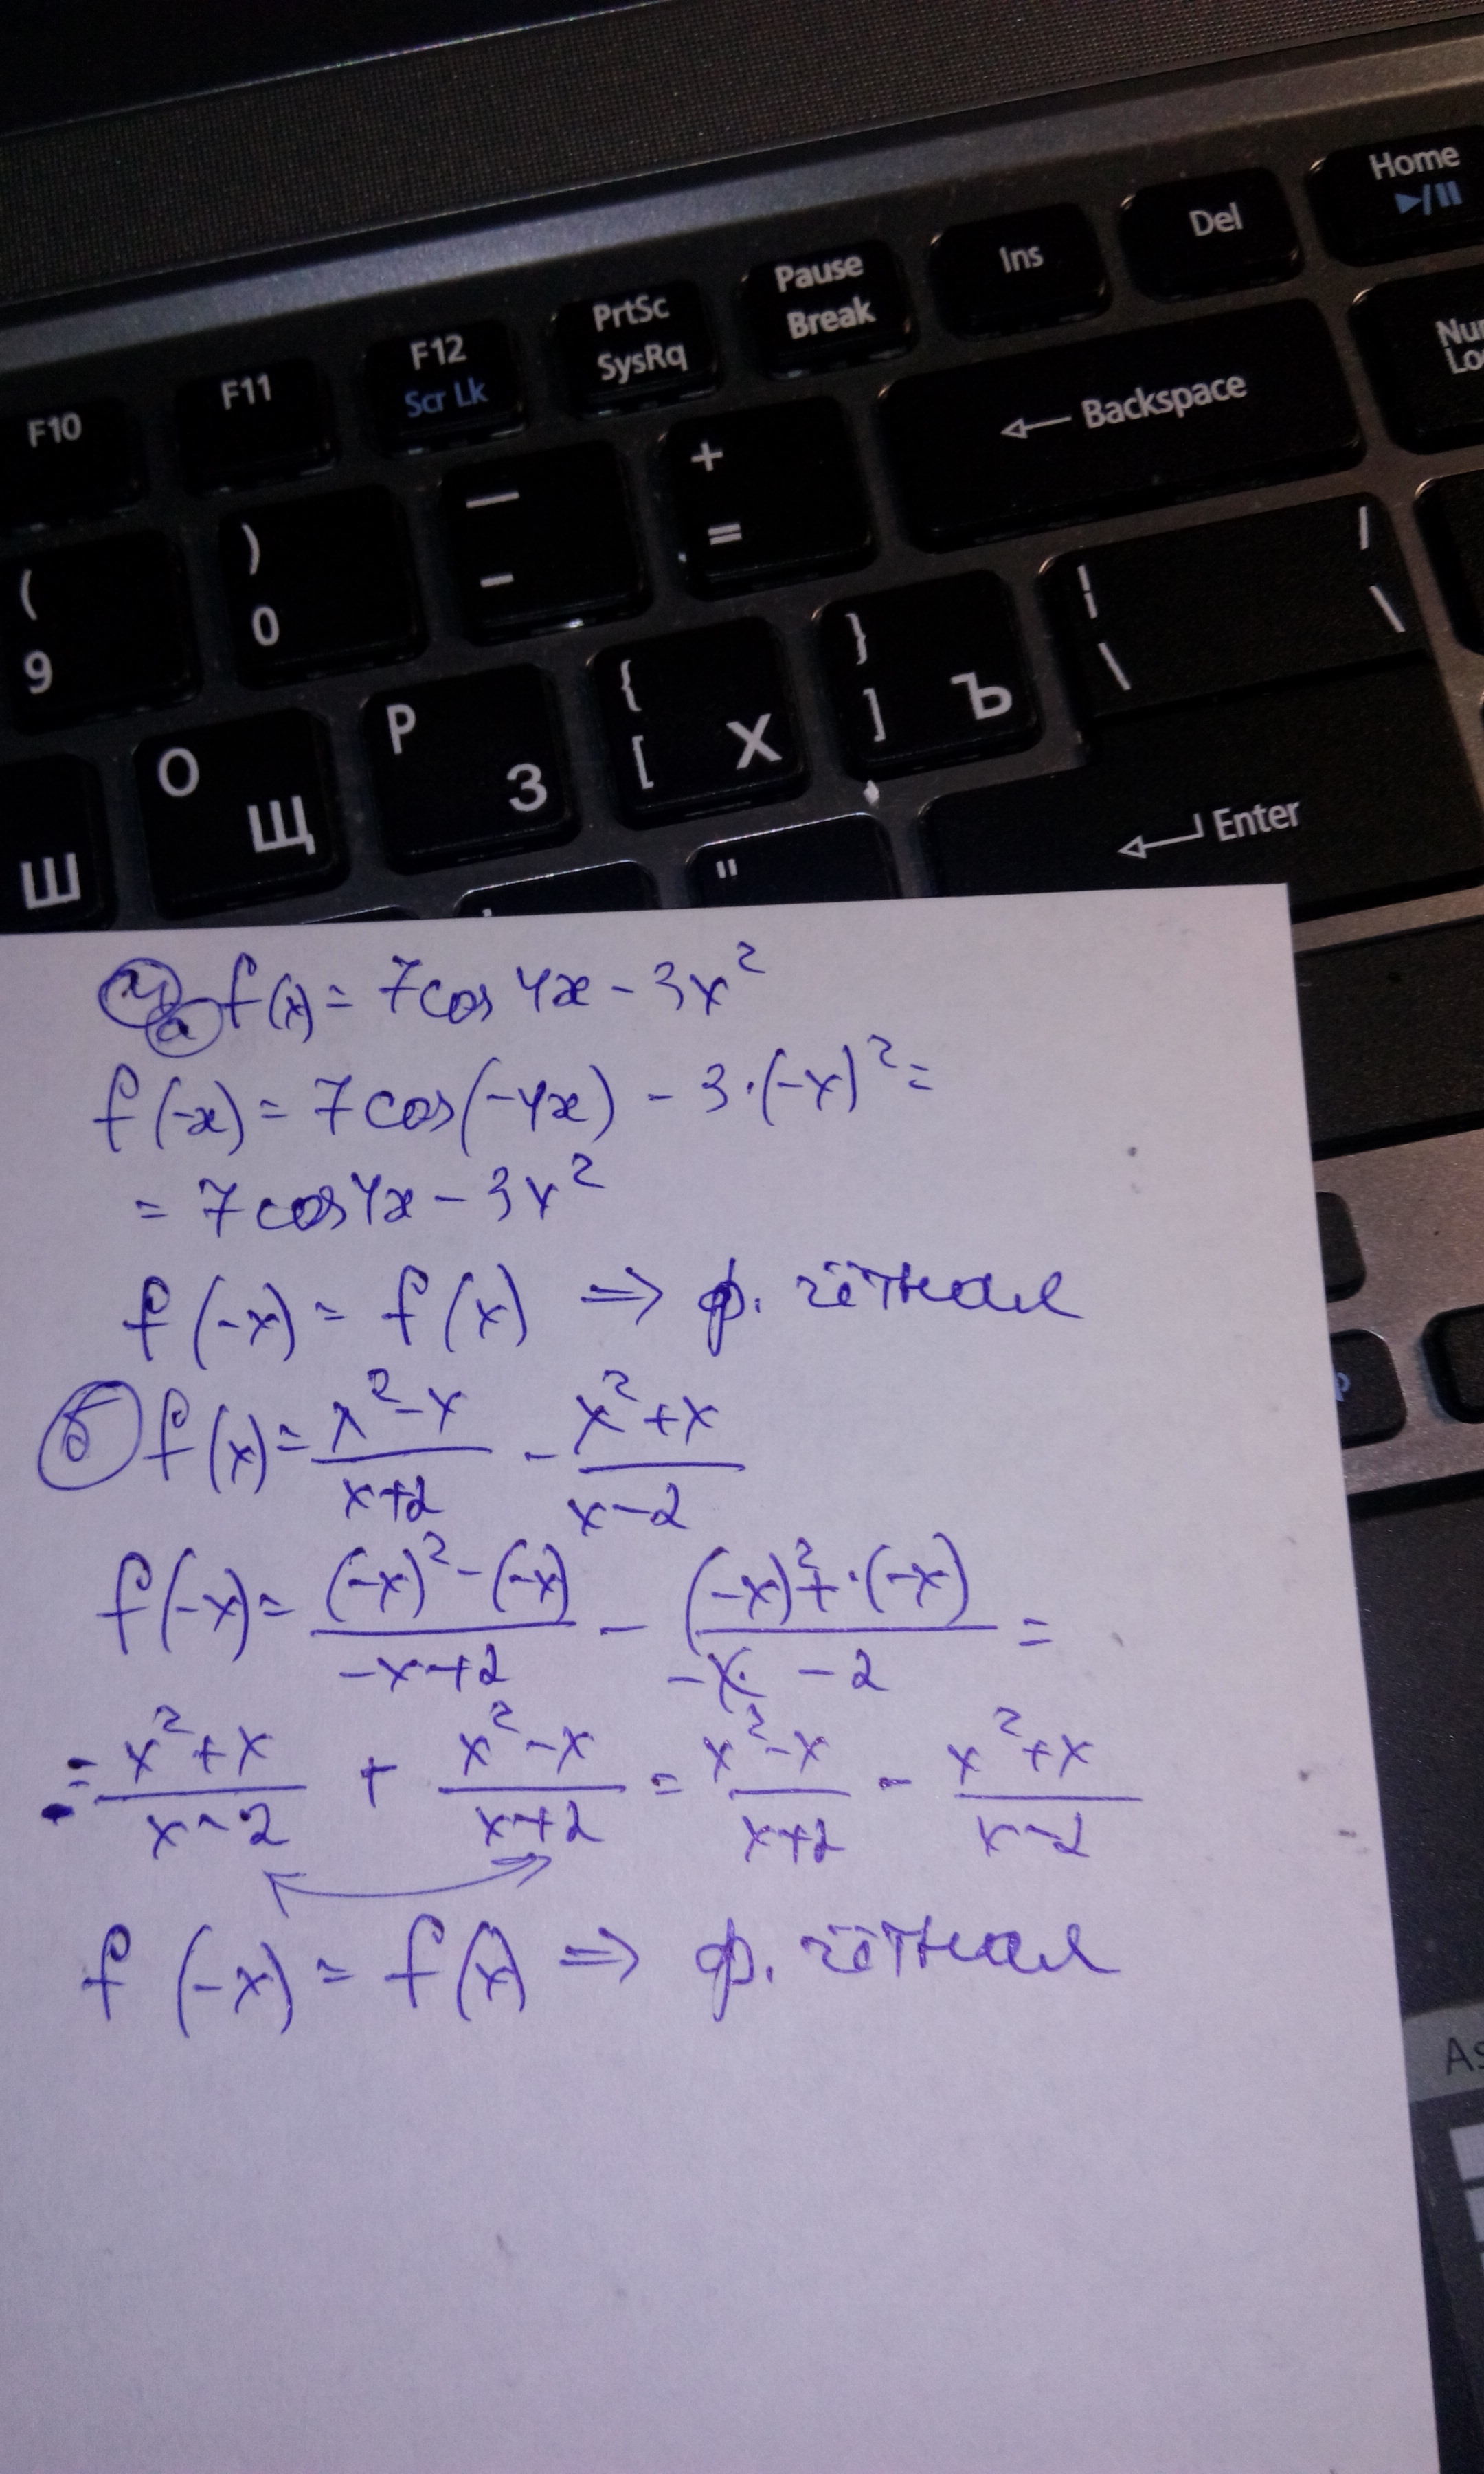 Home
Del
Ins
Pause
Break
PrtSc
SysRq
F12
Scr Lk
F11
F10
Backspace
+
=
—
-
)
0
(
9
/
\
¦
\
}
] Ъ
{
[ Х
P
З
O
Щ
Ш
"
Enter
4 а f(x) = 7cos 4x - 3x²
f(-x) = 7cos(-4x) - 3·(-x)² =
= 7cos4x - 3x²
f(-x) = f(x) ⇒ ф. чётная
б f(x) = (x²-x)/(x+2) - (x²+x)/(x-2)
f(-x) = ((-x)²-(-x))/(-x+2) - ((-x)²+·(-x))/(-x -2) =
= (x²+x)/(x-2) + (x²-x)/(x+2) = (x²-x)/(x+2) - (x²+x)/(x-2)
f(-x) = f(x) ⇒ ф. чётная